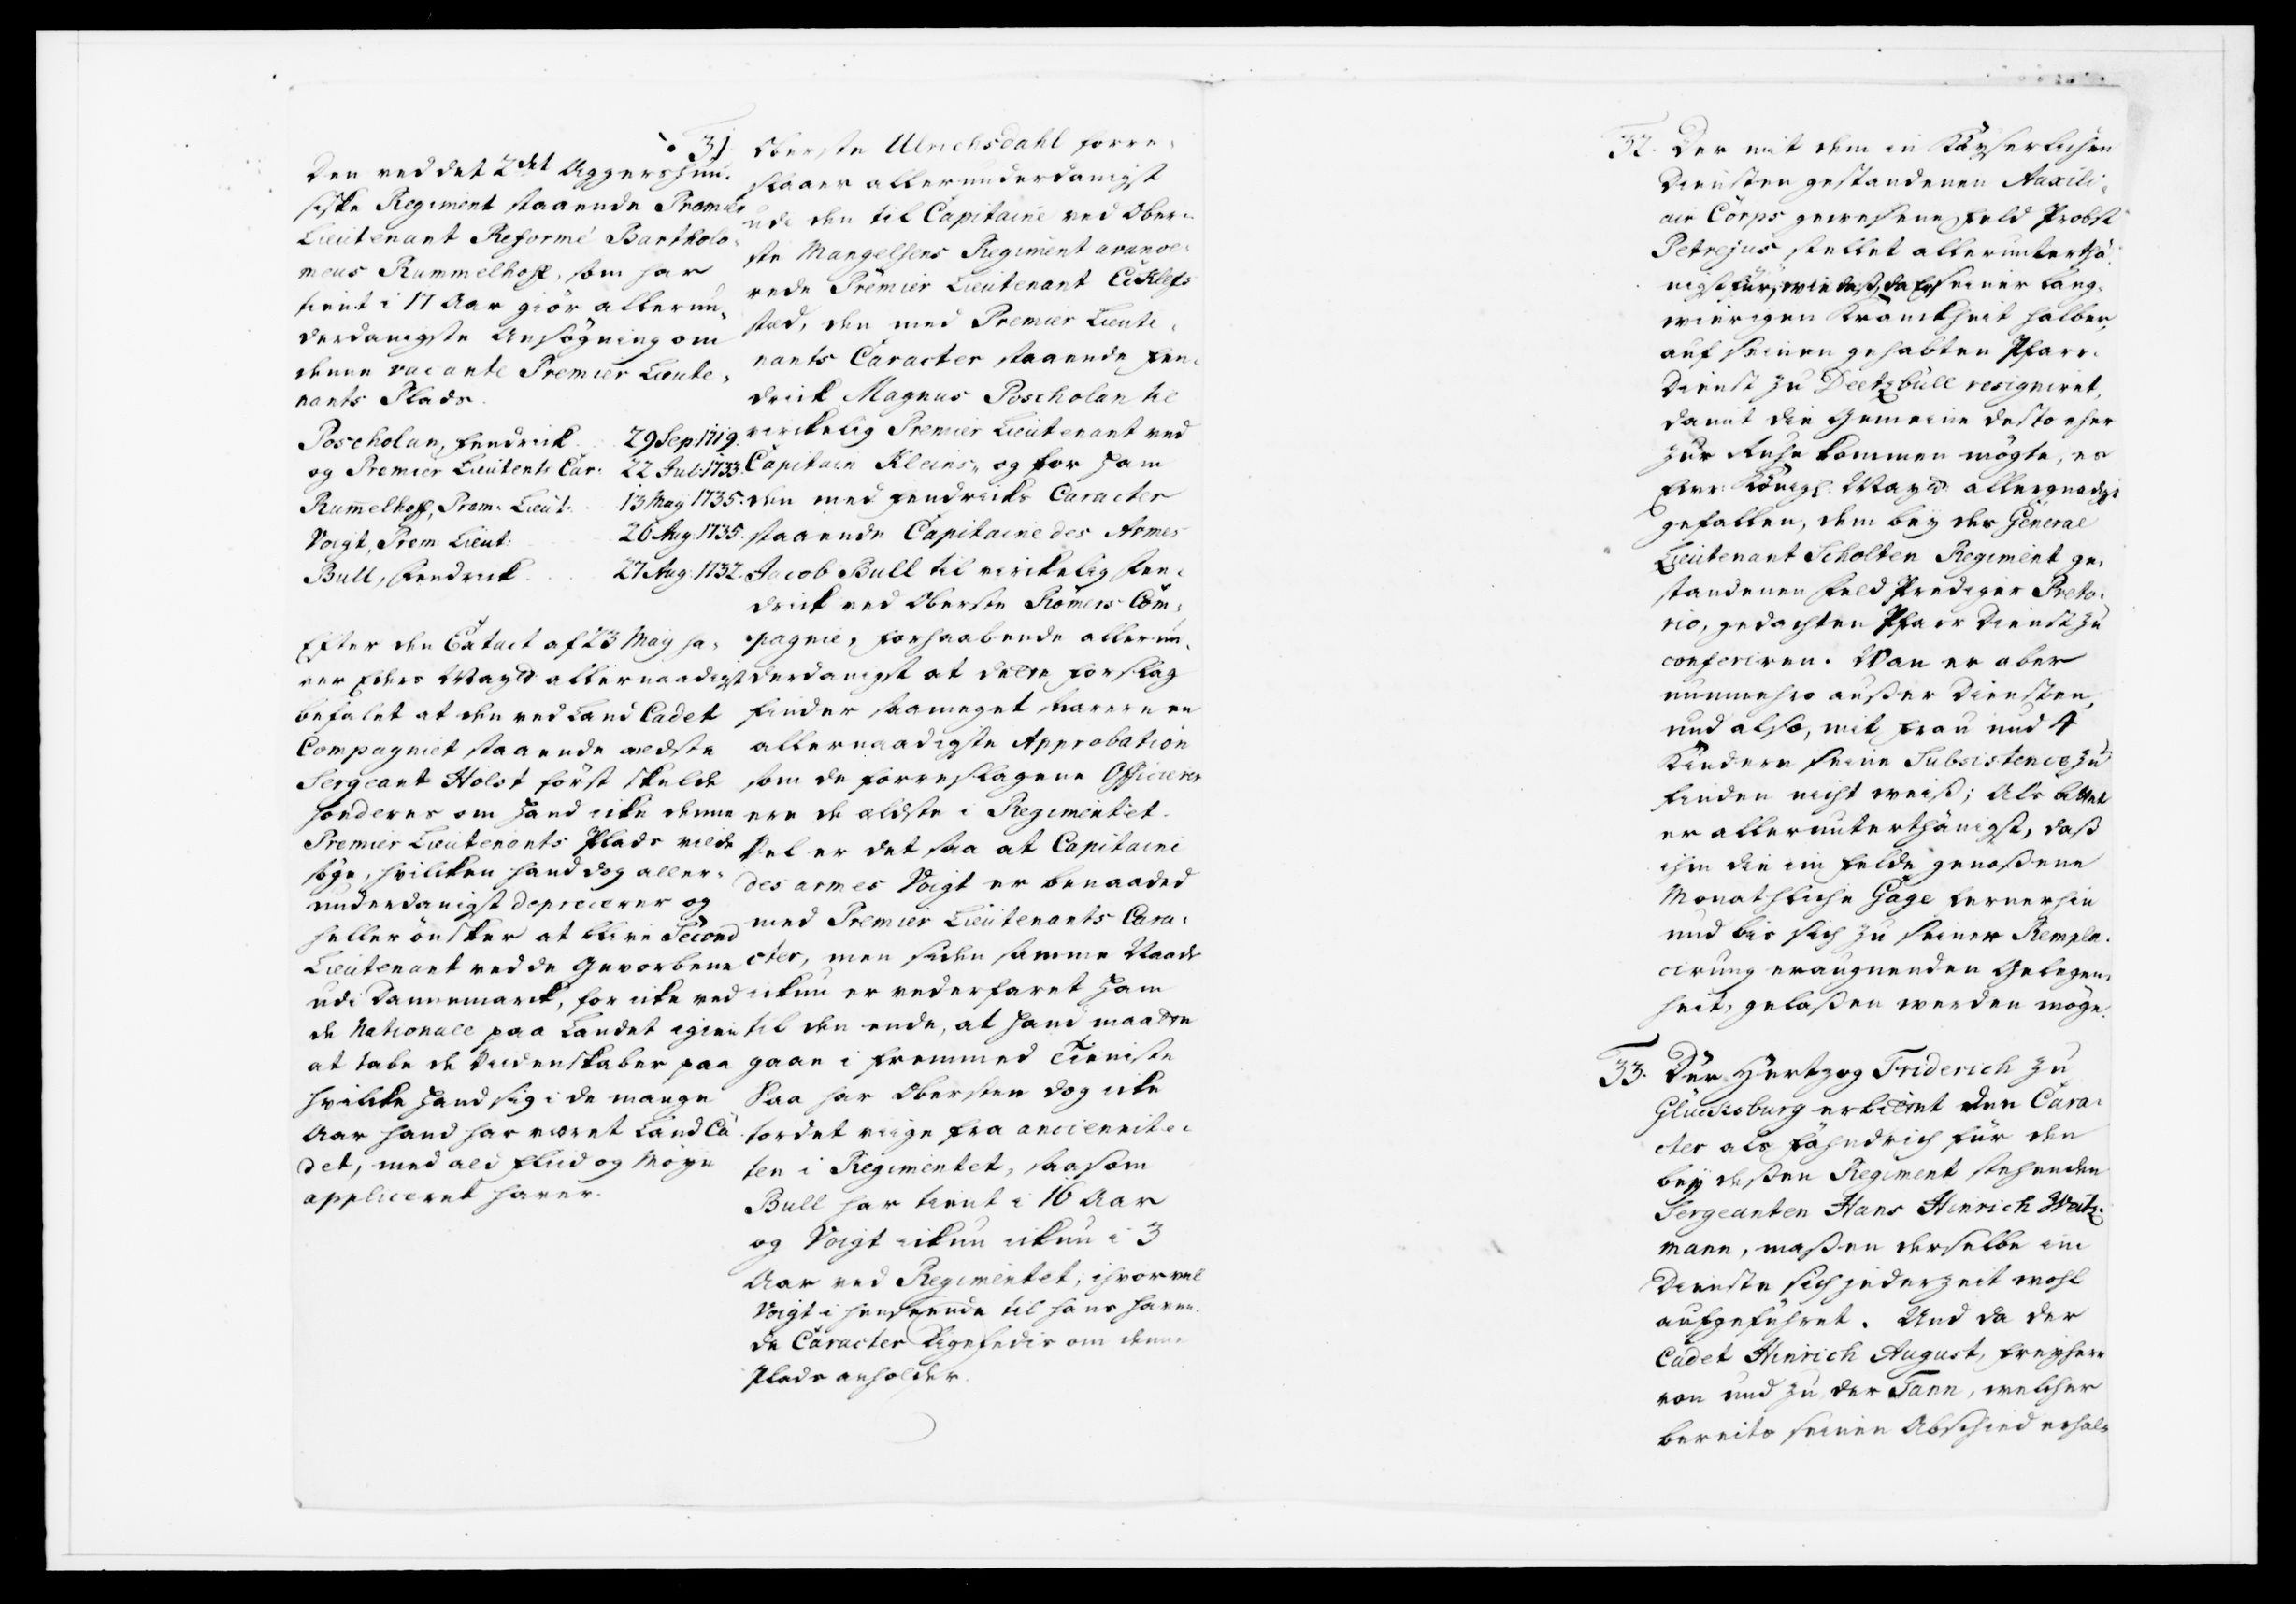 Den ved det 2det Aggershuu-
siske Regiment staaende Premier
Lieutenant Reformé Bartholo-
meus Rummelhoff, som har
tient i 17 Aar giør allerun-
derdanigste Ansøgning om
denne vacante Premier Lieute-
nants Plads.
Poscholan, Fendrick 29 Sep. 1719.
og Premier Lieutents Car: 22 Jul: 1733.
Rum̄elhoff, Prem: Lieut: 13 May 1735.
Voigt, Prem Lieut: 26 Aug. 1735.
Bull, Fendrick 27 Aug. 1732.
Efter den Extract af 23 May ha-
ver Eders Mayts allernaadigst
befalet at den ved Land Cadet
Compagniet staaende ældste
Sergeant Holst først skulde
høderes om Hand icke denne
Premier Lieutenants Plads vilde
søge, hvilcken hand dog aller-
underdanigst deprecerer og
heller ønsker at blive Second
Lieutenant ved de Gevorbene
udi Dannemarck, for icke ved
de Nationale paa Landet igien
at tabe de Videnskaber paa
hvilcke Hand sig i de mange
Aar hand har været Land Ca-
det, med ald Fliid og Møye
appliceret haver.
31
Oberste Ulrichsdahl forre-
slaaer allerunderdanigst
udi den til Capitaine ved Ober-
ste Mangelsens Regiment avance-
rede Premier Lieutenant Eckleffs
stæd, den med Premier Lieute-
nants Caracter staaende Fen-
drick Magnus Poscholan til
virckelig Premier Lieutenant ved
Capitain Kleins, og for Ham
den med Fendricks Caracter
staaende Capitaine des Armes
Jacob Bull til virckelig Fen-
drick ved Oberste Römers Com-
pagnie, forhaabende allerun-
derdanigst at dette Forslag
finder saameget snarere en
allernaadigste Approbation
som de forreslagene Officierer
ere de ældste i Regimentet.
Vel er det saa at Capitaine
des armes Voigt er benaaded
med Premier Lieutenants Cara-
cter, men siden samme Naade
ickun er vederfaret Ham
til den ende, at Hand maatte
gaae i fremmed Tieniste
Saa har Obersten dog icke
tordet viige fra anciennite-
ten i Regimentet, saasom
Bull har tient i 16 Aar
og Voigt ickun ickun i 3
Aar ved Regimentet, ihvorvel
Voigt i henseende til hans haven-
de Caracter ligefedis om denne
Plads anholder.
32. Der mit dem in Käyserlichen
Diensten gestandenen Auxili-
air Corps gewesene Feld Probst
Petrejus stellet allerunterthä-
nigst für, wie daß, da Er seiner lang-
wierigen Kranckheit halber,
auf seinen gehabten Pfarr-
Dienst zu Deetzbüll resigniret,
damit die Gemeine desto eher
zur Ruhe kommen mögte, es
Ewr: Königl. Mayts allergnädigst
gefallen, dem bey des General
Lieutenant Scholten Regiment ge-
standenen Feld Prediger Preto-
rio, gedachten Pfarr Dienst zu
conferiren. Wan er aber
nunmehro außer Diensten,
und also, mit Frau und 4
Kindern seine Subsistence zu
finden nicht weiß; Als bittet
er allerunterthänigst, daß
ihm die im Felde genoßene
Monathliche Gage fernerhin
und bis sich zu seiner Rempla-
cirung eraugnenden Gelegen-
heit, gelaßen werden möge.
33. Der Hertzog Friderich zu
Glücksburg erbittet den Cara-
cter als Fähndrich für den
bey deßen Regiment stehenden
Sergeanten Hans Hinrich Weitz-
mann, maßen derselbe im
Dienste sich jederzeit wohl
aufgeführet. Und da der
Cadet Hinrich August, Freyherr
von und zu der Tann, welcher
bereits seinen Abschied erhal-